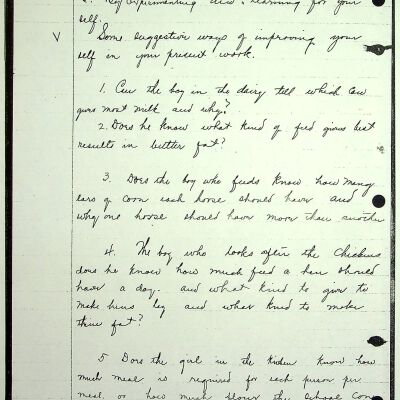 by experimenting and learning for your
self.
V Some suggestive ways of improving your
self in your present work.
1. Can the boy in the dairy tell which cow
gives most milk and why?
2. Does he know what kind of feed gives best
results in butter fat?
3. Does the boy who feeds know how many
ears of corn each horse should have and
why one horse should have more than another
4. The boy who looks after the chickens
does he know how much feed a hen should
have a day. and what kind to give to
make hens lay and what kind to make
them fat?
5 Does the girl in the kitchen know how
much meal is required for each person per
meal or how much flour the school con